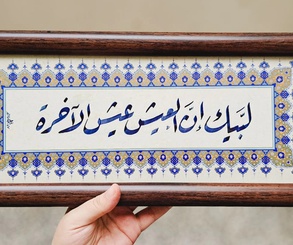 لبّيك إنَّ العيش عيش الآخرة